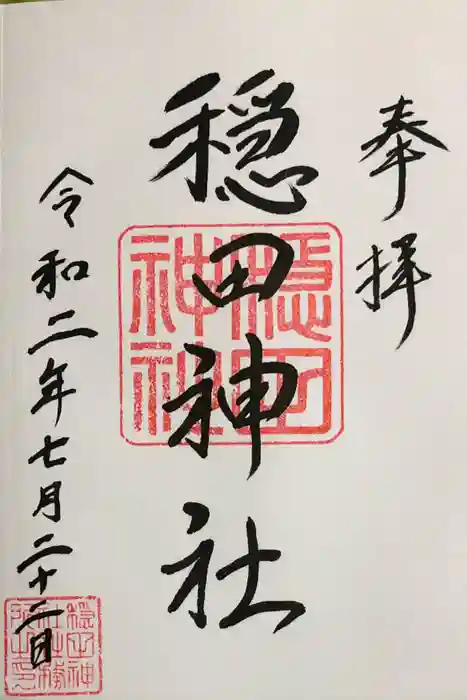 奉拝
穏田神社
令和二年七月二十二日
穏田
神社